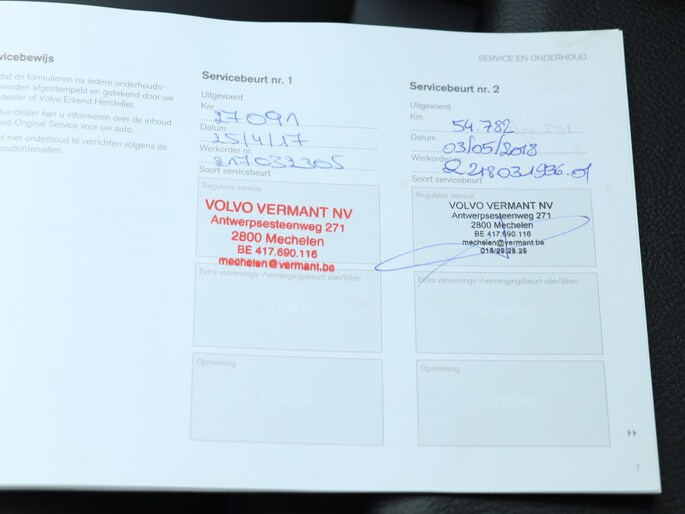 SERVICE EN ONDERHOUD
vicebewijs
dat de formulieren na iedere onderhouds-
worden afgestempeld en getekend door uw
dealer of Volvo Erkend Hersteller.
vo-dealer kan u informeren over de inhoud
lvo Original Service voor uw auto.
et niet onderhoud te verrichten volgens de
oudsintervallen.
Servicebeurt nr. 1
Uitgevoerd
Km 27091
Datum 25/4/17
Werkorder nr. 217032305
Soort servicebeurt
Reguliere service
VOLVO VERMANT NV
Antwerpsesteenweg 271
2800 Mechelen
BE 417.690.116
mechelen@vermant.be
Extra verversings-/vervangingsbeurt olie/filter:
Opmerking
Servicebeurt nr. 2
Uitgevoerd
Km 54.782
Datum 03/05/2018
Werkorder nr.
Soort servicebeurt
Reguliere service
VOLVO VERMANT NV
Antwerpsesteenweg 271
2800 Mechelen
BE 417.690.116
mechelen@vermant.be
015/29.25.25
Extra verversings-/vervangingsbeurt olie/filter:
Opmerking
7